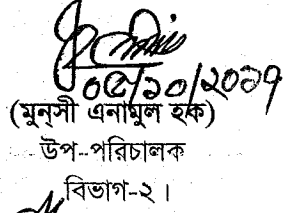 ০৫/১০/২০১৭
(মুন্সী এনামুল হক)
উপ-পরিচালক
বিভাগ-২।